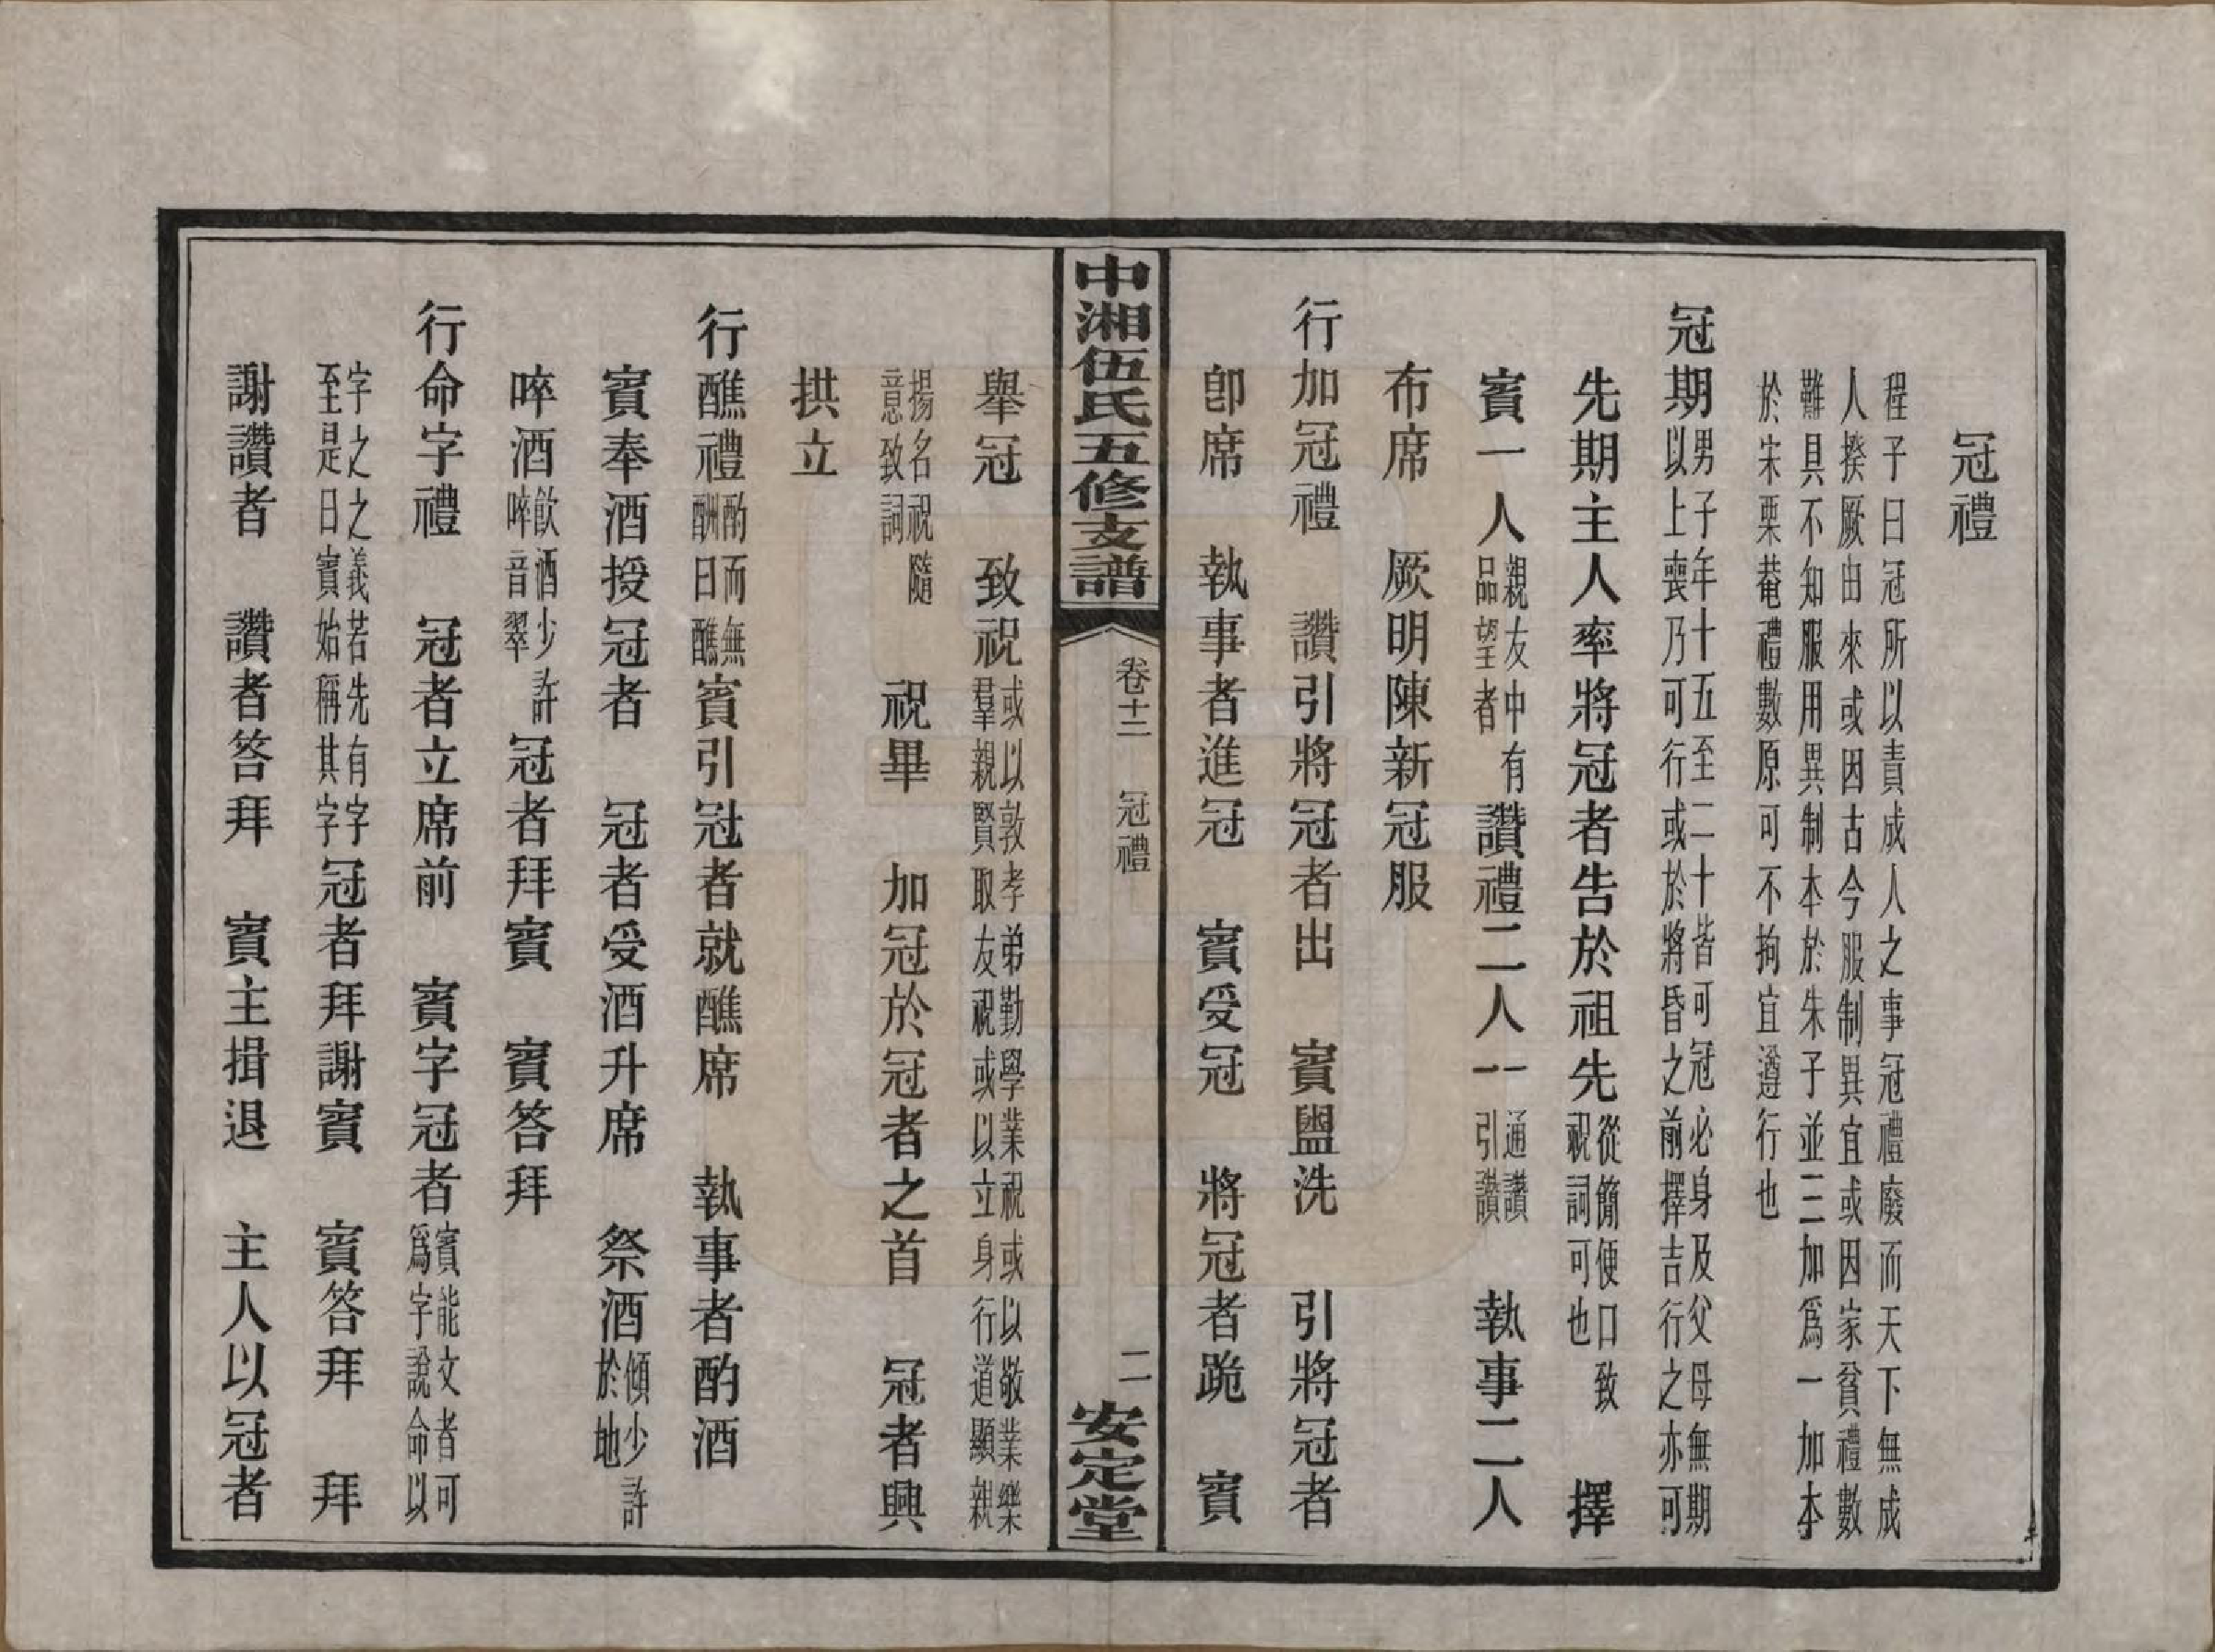 冠禮
程子曰冠所以責成人之事冠禮廢而天下無成
人揆厥由來或因古今服制異宜或因家貧禮數
難具不知服用異制本於朱子並三加爲一加本
於宋栗菴禮數原可不拘宜遵行也
冠期男子年十五至二十皆可冠必身及父母無期
以上喪乃可行或於將昏之前擇吉行之亦可
先期主人率將冠者告於祖先從簡便口致
祝詞可也 擇
賓一人親友中有
品望者 讚禮二人一通讚
一引讚 執事二人
布席 厥明陳新冠服
行加冠禮 讚引將冠者出 賓盥洗 引將冠者
卽席 執事者進冠 賓受冠 將冠者跪 賓
中湘伍氏五修支譜
卷十二 冠禮
二
安定堂
舉冠 致祝或以敦孝弟勤學業祝或以敬業樂
羣親賢取友祝或以立身行道顯親
揚名祝隨
意致詞 祝畢 加冠於冠者之首 冠者興
拱立
行醮禮酌而無
酬曰醮賓引冠者就醮席 執事者酌酒
賓奉酒授冠者 冠者受酒升席 祭酒傾少許
於地
啐酒飮酒少許
啐音翠冠者拜賓 賓答拜
行命字禮 冠者立席前 賓字冠者賓能文者可
爲字說命以
字之之義若先有字字
至是日賓始稱其字冠者拜謝賓 賓答拜 拜
謝讚者 讚者答拜 賓主揖退 主人以冠者